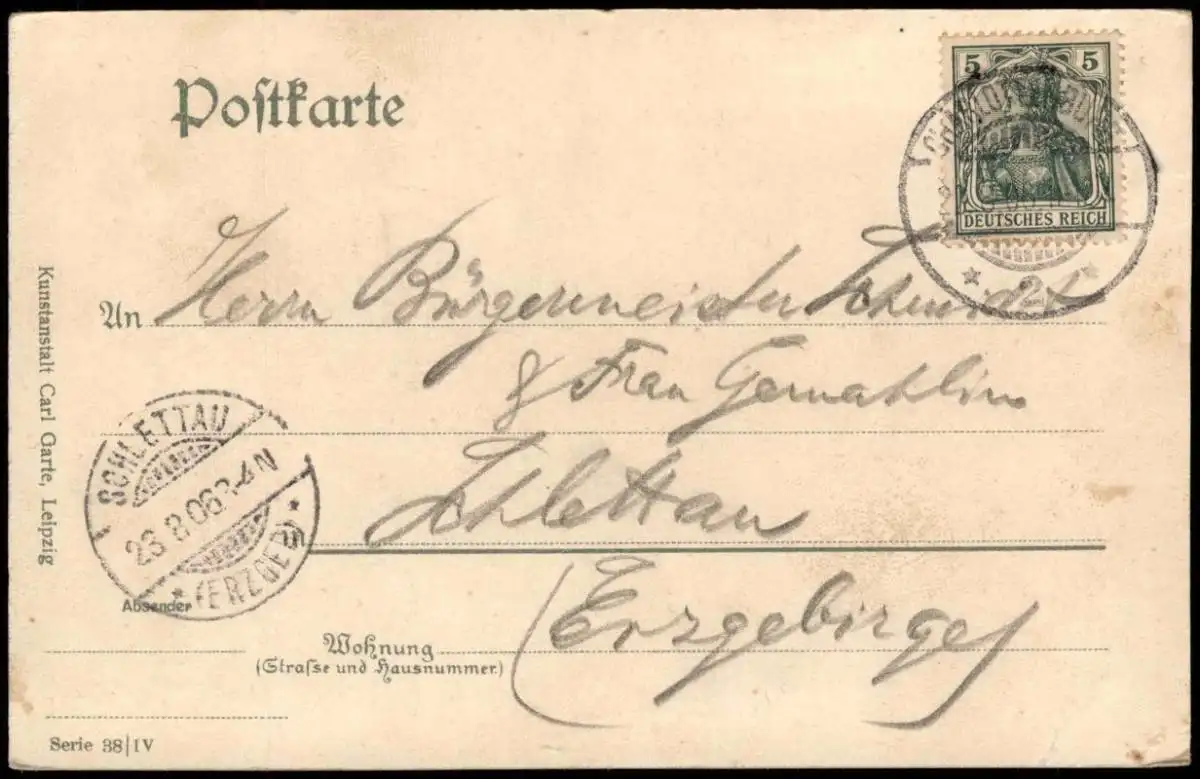 Postkarte
5 5
DEUTSCHES REICH
2
An Herrn Bürgermeister Schmidt
& Frau Gemahlin
Schlettau
(Erzgebirge)
SCHLETTAU
23.8.06 3-4N
(ERZGEB)
Absender
Wohnung
(Straſse und Hausnummer.)
Kunstanstalt Carl Garte, Leipzig
Serie 38|IV